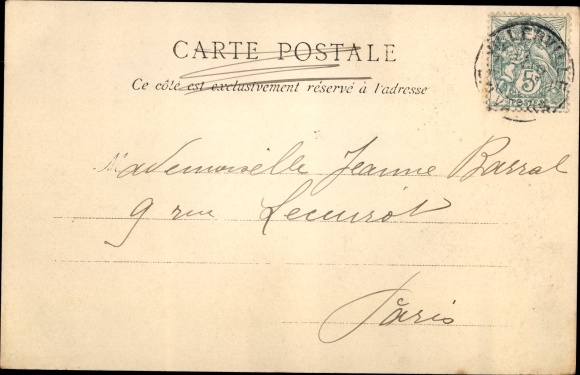 CARTE POSTALE
Ce côté est exclusivement réservé à l'adresse
VILLERVILLE
5
Mademoiselle Jeanne Barral
9 rue Lecuirot
Paris